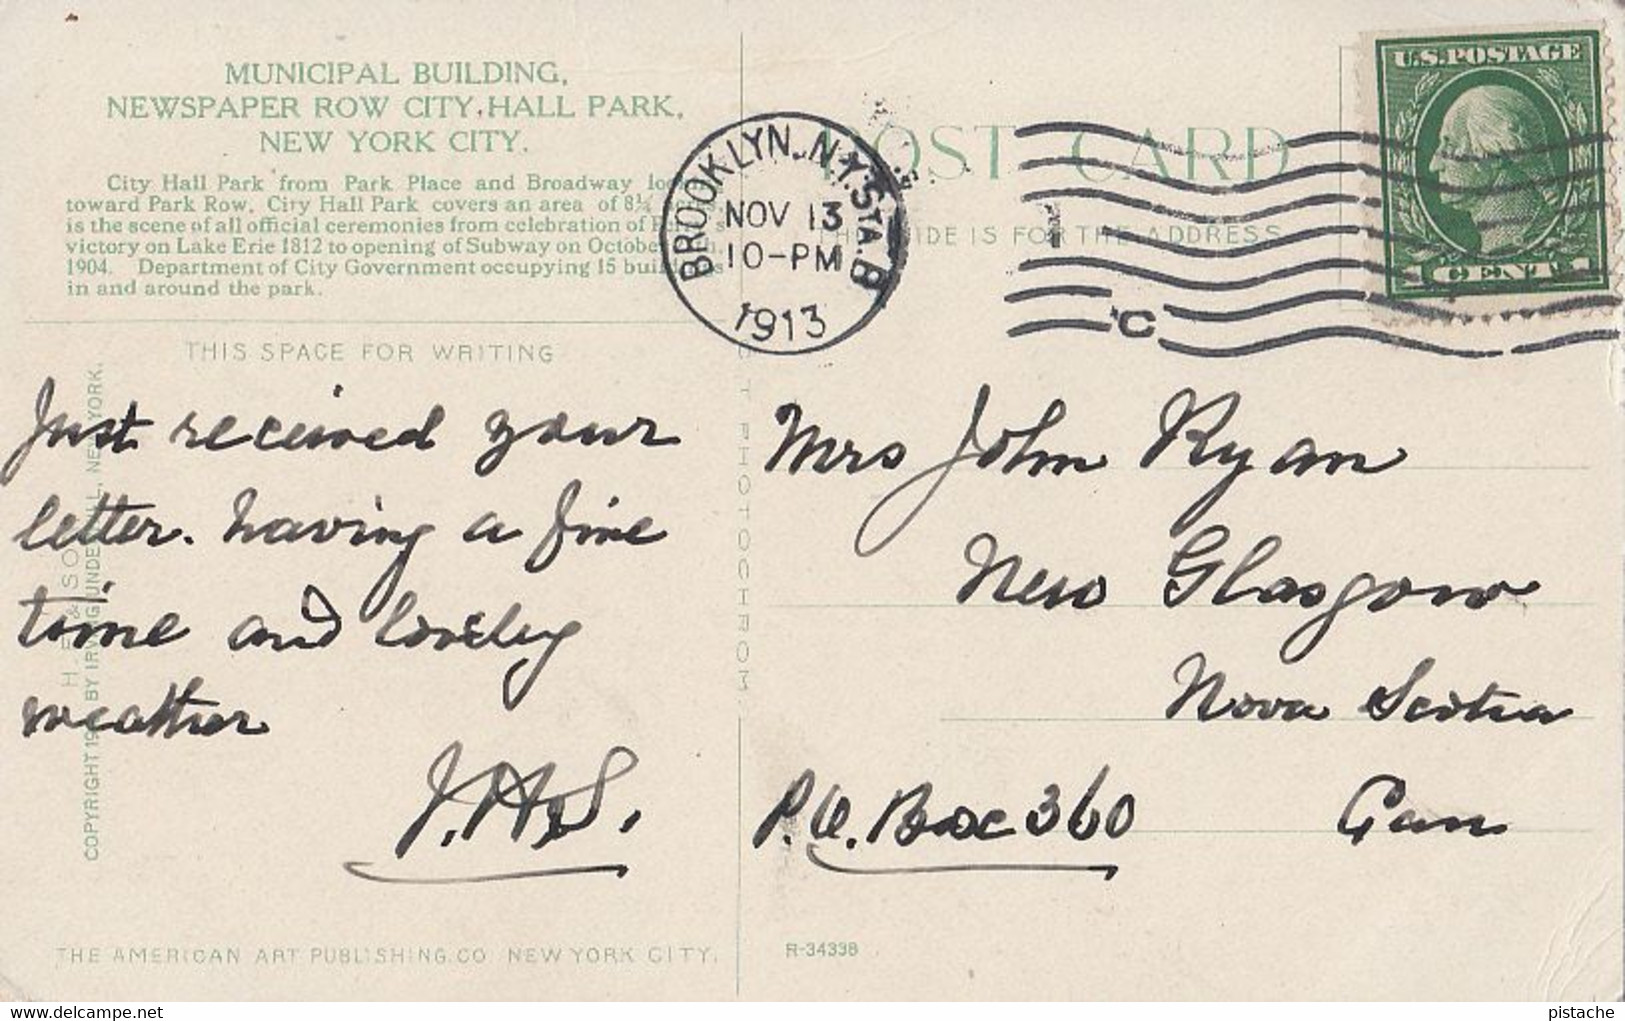 MUNICIPAL BUILDING,
NEWSPAPER ROW CITY, HALL PARK,
NEW YORK CITY.
City Hall Park from Park Place and Broadway
toward Park Row. City Hall Park covers an area of 8¼
is the scene of all official ceremonies from celebration of
victory on Lake Erie 1812 to opening of Subway on
1904. Department of City Government occupying 15
in and around the park.
THIS SPACE FOR WRITING
Just received your
letter. having a fine
time and lovely
weather
J.H.S.
COPYRIGHT BY IRVING UNDERHILL, NEW YORK.
THE AMERICAN ART PUBLISHING CO NEW YORK CITY.
PHOTOCHROM
BROOKLYN, N.Y. STA. B
NOV 13
10-PM
1913
C
POST CARD
THIS SIDE IS FOR THE ADDRESS
U.S. POSTAGE
1 CENT 1
Mrs John Ryan
New Glasgow
Nova Scotia
P.O. Box 360 Can
R-34338
www.delcampe.net
pistache